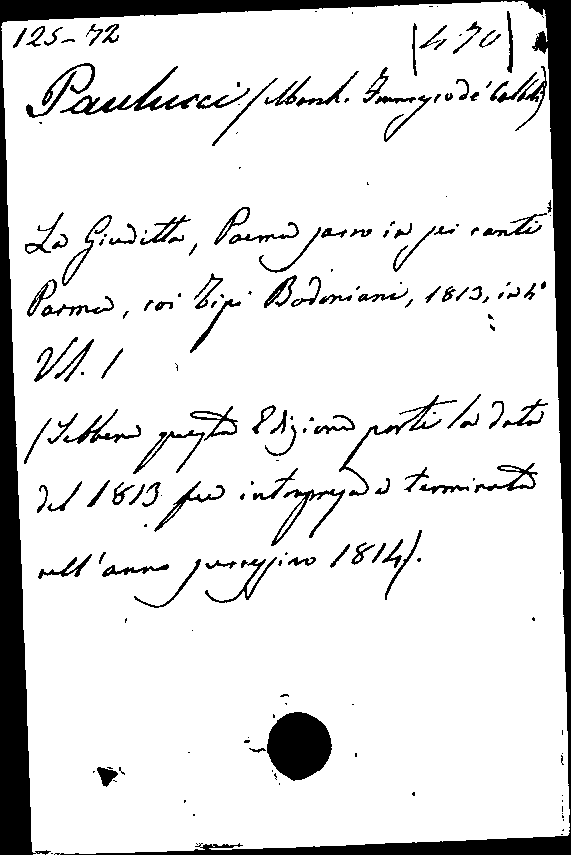 125-72
(470)
Paulucci (March. Francesco de' Calboli)
La Giuditta, Poema sacro in sei canti
Parma, coi Tipi Bodoniani, 1813, in 4º
Vol. 1
(Sebbene questa Edizione porti la data
del 1813 fu intrapresa e terminata
nell'anno susseguente 1814).